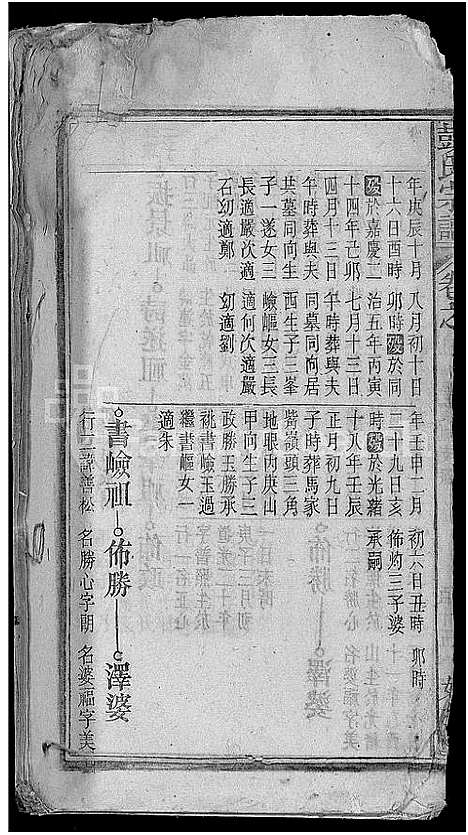 氏宗譜 卷之
年庚辰十月
十六日酉時
歿於嘉慶二
十四年己卯
四月十三日
午時葬與夫
共墓同向生
子一遂女三
長適嚴次適
石幼適鄭
八月初十日
卯時歿於同
治五年丙寅
七月十三日
午時葬與夫
同墓同向居
西生子三峯
嶮嶇女三長
適何次適嚴
幼適劉
年壬申二月
二十九日亥
時歿於光緒
十八年壬辰
正月初九日
子時葬馬家
觜嶺頭三角
地眼丙庚山
甲向生子三
政勝玉勝承
祧書嶮玉過
繼書嶇女一
適朱
初六日丑時
佈灼三子婆
承嗣
卯時
書嶮祖 佈勝 澤婆
行三諱善松 名勝心字朝 名婆福字美